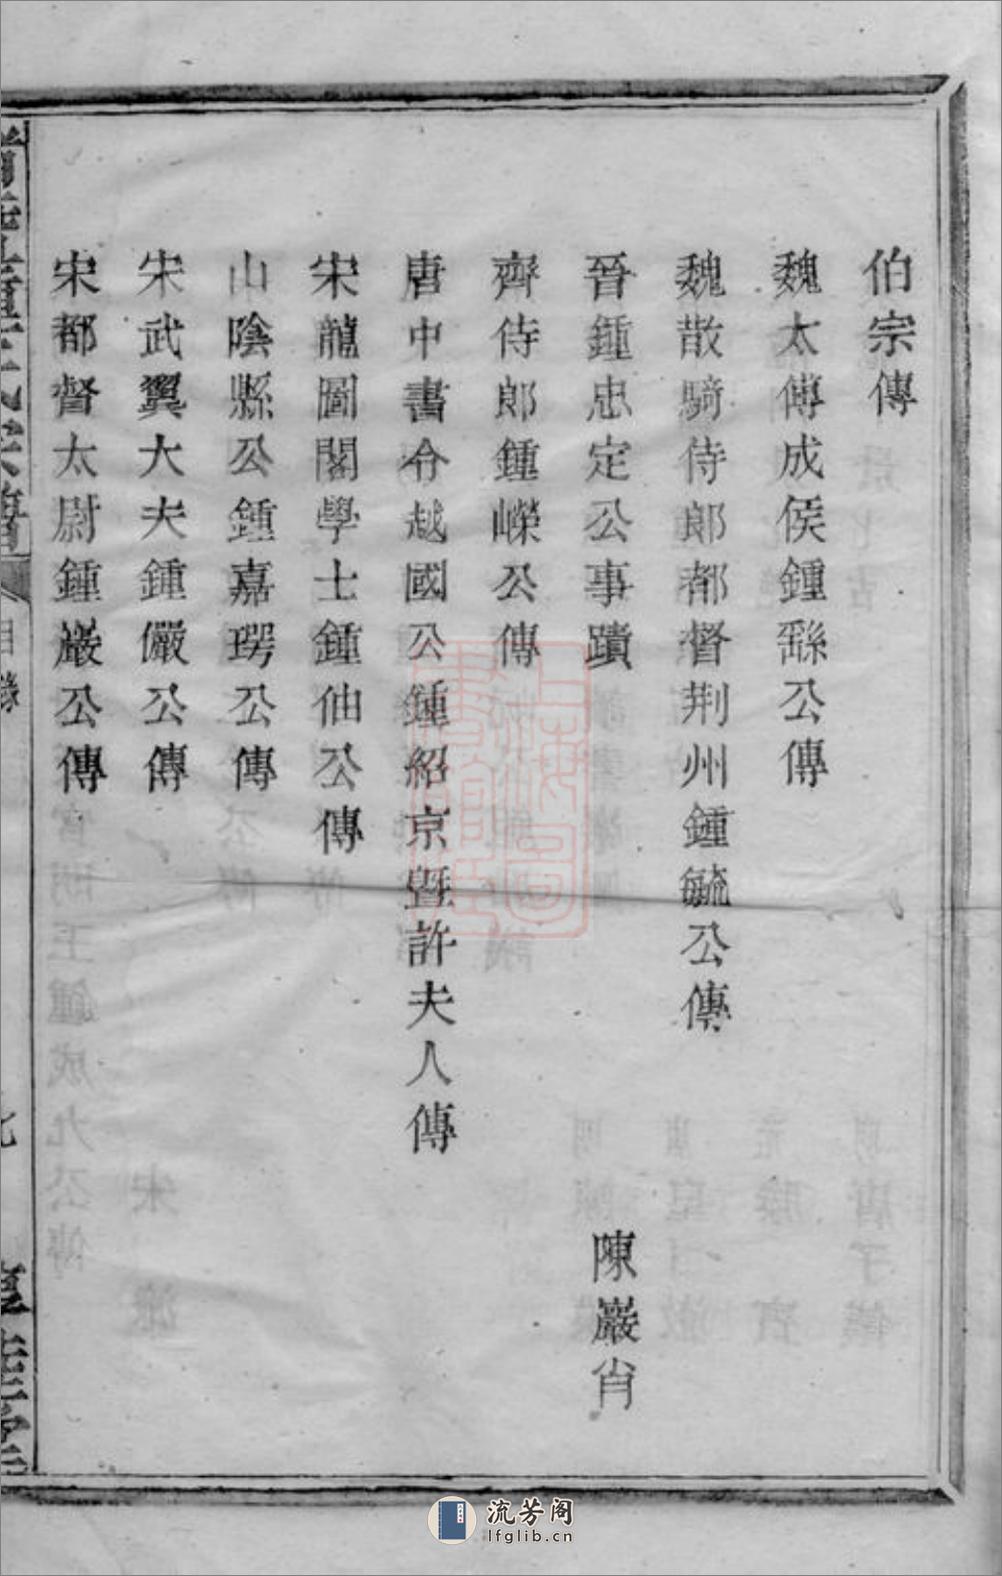 伯宗傳
魏太傅成侯鍾繇公傳
魏散騎侍郎都督荆州鍾毓公傳
晉鍾忠定公事蹟 陳巖肖
齊侍郎鍾嶸公傳
唐中書令越國公鍾紹京曁許夫人傳
宋龍圖閣學士鍾伷公傳
山陰縣公鍾嘉琈公傳
宋武翼大夫鍾儼公傳
宋都督太尉鍾巖公傳
目錄
九
上海圖書館藏
流芳阁
lfglib.cn